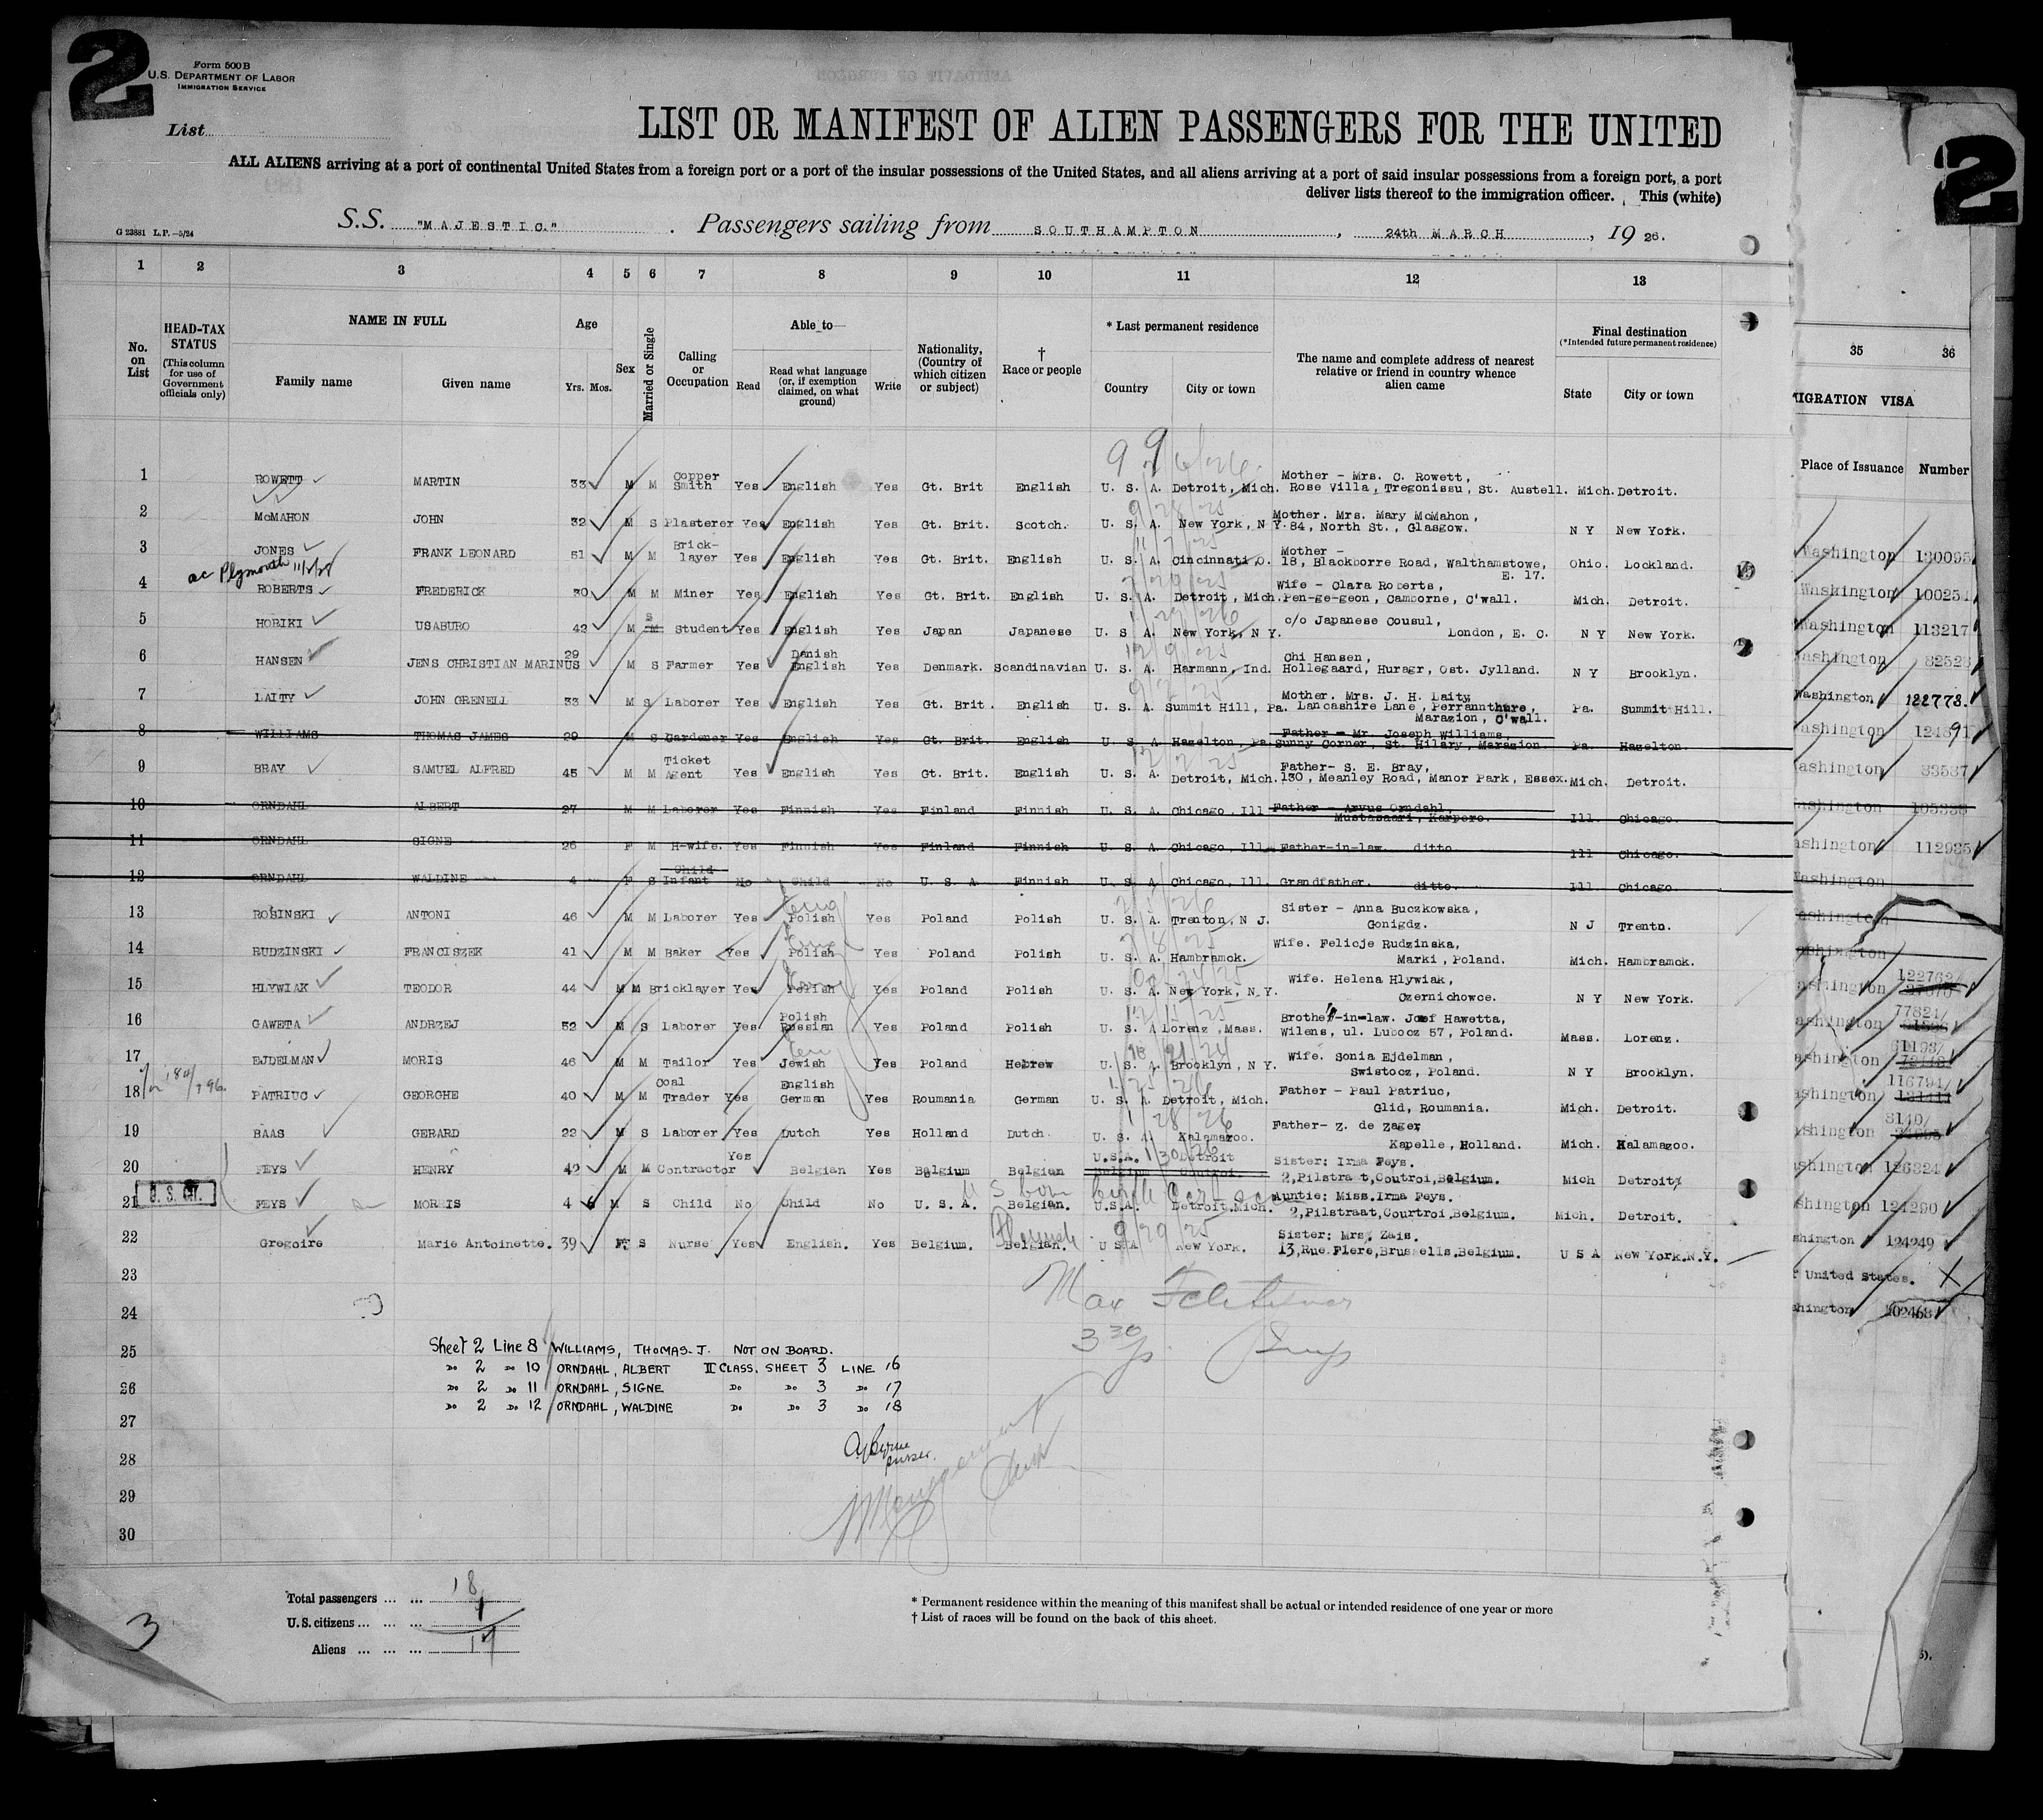 2
Form 500B
U.S. DEPARTMENT OF LABOR
IMMIGRATION SERVICE
List
LIST OR MANIFEST OF ALIEN PASSENGERS FOR THE UNITED
ALL ALIENS arriving at a port of continental United States from a foreign port or a port of the insular possessions of the United States, and all aliens arriving at a port of said insular possessions from a foreign port, a port
deliver lists thereof to the immigration officer. This (white)
2
G 23881 L.P.—5/24
S.S. "MAJESTIC." Passengers sailing from SOUTHAMPTON, 24th MARCH, 1926.
1 2 3 4 5 6 7 8 9 10 11 12 13
No. on List
HEAD-TAX STATUS
(This column for use of Government officials only)
NAME IN FULL
Family name Given name
Age
Yrs. Mos.
Sex
Married or Single
Calling or Occupation
Able to—
Read
Read what language (or, if exemption claimed, on what ground)
Write
Nationality, (Country of which citizen or subject)
† Race or people
* Last permanent residence
Country City or town
The name and complete address of nearest relative or friend in country whence alien came
Final destination
(*Intended future permanent residence)
State City or town
35 36
MIGRATION VISA
Place of Issuance Number
1 ROWETT MARTIN 33 M M Copper Smith Yes English Yes Gt. Brit English U. S. A. Detroit, Mich. Mother - Mrs. C. Rowett,
Rose Villa, Tregonissu, St. Austell. Mich. Detroit.
2 McMAHON JOHN 32 M S Plasterer Yes English Yes Gt. Brit. Scotch. U. S. A. New York, N Y. Mother. Mrs. Mary McMahon,
84, North St., Glasgow. N Y New York.
3 JONES FRANK LEONARD 51 M M Brick-layer Yes English Yes Gt. Brit. English U. S. A. Cincinnati, O. Mother -
18, Blackborre Road, Walthamstowe, E. 17. Ohio. Lockland.
ac Plymouth
4 ROBERTS FREDERICK 30 M M Miner Yes English Yes Gt. Brit. English U. S. A. Detroit, Mich. Wife - Clara Roberts,
Pen-ge-geon, Camborne, C'wall. Mich. Detroit.
5 HORIKI USABURO 42 M S M Student Yes English Yes Japan Japanese U. S A. New York, N Y. c/o Japanese Cousul,
London, E. C. N Y New York.
6 HANSEN JENS CHRISTIAN MARINUS 29 M S Farmer Yes Danish English Yes Denmark. Scandinavian U. S. A. Harmann, Ind. Chi Hansen,
Hollegaard, Huragr, Ost. Jylland. N Y Brooklyn.
7 LAITY JOHN GRENELL 33 M S Laborer Yes English Yes Gt. Brit. English U. S. A. Summit Hill, Pa. Mother. Mrs. J. H. Laity
Lancashire Lane, Perrannthure,
Marazion, C'wall. Pa. Summit Hill.
8 WILLIAMS THOMAS JAMES 29 M S Gardener Yes English Yes Gt. Brit. English U. S A Hazelton, Pa. Father - Mr. Joseph Williams,
Sunny Corner, St. Hilary, Marazion. Pa. Hazelton.
9 BRAY SAMUEL ALFRED 45 M M Ticket Agent Yes English Yes Gt. Brit. English U. S. A. Detroit, Mich. Father- S. E. Bray,
130, Meanley Road, Manor Park, Essex. Mich. Detroit.
10 ORNDAHL ALBERT 27 M M Laborer Yes Finnish Yes Finland Finnish U. S. A. Chicago, Ill Father - Arvus Orndahl,
Mustasaari, Karpero. Ill. Chicago.
11 ORNDAHL SIGNE 26 F M H-wife. Yes Finnish Yes Finland Finnish U. S. A. Chicago, Ill. Father-in-law. ditto Ill Chicago.
12 ORNDAHL WALDINE 4 F S Child Infant No Child No U. S. A Finnish U. S. A Chicago, Ill. Grandfather. ditto. Ill. Chicago.
13 ROSINSKI ANTONI 46 M M Laborer Yes Polish Yes Poland Polish U. S. A. Trenton, N J. Sister - Anna Buczkowska,
Gonigdz. N J Trentn.
14 RUDZINSKI FRANCISZEK 41 M M Baker Yes Polish Yes Poland Polish U. S. A. Hambramck. Wife. Felicje Rudzinska,
Marki, Poland. Mich. Hambramck.
15 HLYWIAK TEODOR 44 M M Bricklayer Yes Polish Yes Poland Polish U. S. A. New York, N.Y. Wife. Helena Hlywiak,
Czernichowce. N Y New York.
16 GAWETA ANDRZEJ 52 M S Laborer Yes Polish Russian Yes Poland Polish U. S. A Lorenz, Mass. Brother-in-law. Josef Hawetta,
Wilens, ul. Lubocz 57, Poland. Mass. Lorenz.
17 EJDELMAN MORIS 46 M M Tailor Yes Jewish Yes Poland Hebrew U. S. A. Brooklyn, N Y. Wife. Sonia Ejdelman,
Swistocz, Poland. N Y Brooklyn.
18 PATRIUC GEORGHE 40 M M Coal Trader Yes English German Yes Roumania German U. S. A. Detroit, Mich. Father - Paul Patriuc,
Glid, Roumania. Mich. Detroit.
19 BAAS GERARD 22 M S Laborer Yes Dutch Yes Holland Dutch U. S. A. Kalamazoo. Father- Z. de Zager
Kapelle, Holland. Mich. Kalamazoo.
20 FEYS HENRY 42 M M Contractor Yes Belgian Yes Belgium Belgian U.S.A. Detroit Sister: Irma Feys.
2,Pilstraat,Coutroi,Belgium. Mich Detroit
U. S. CIT.
21 FEYS MORRIS 4 M S Child No Child No U. S. A. Belgian. U.S.A. Detroit.Mich. Auntie: Miss.Irma Feys.
2,Pilstraat,Courtroi,Belgium. Mich. Detroit.
22 Gregoire Marie Antoinette. 39 F S Nurse Yes English. Yes Belgium. Belgian. Flemish U S A New York. Sister: Mrs. Zais.
13,Rue.Flere,Brussells,Belgium. U S A New York.N.Y.
23
24
25
26
27
28
29
30
Washington 130095
Washington 100251
Washington 113217
Washington 82528
Washington 122773.
Washington 124891
ashington 83587
ashington 105338
ashington 112935
Washington
ashington
ashington
ashington 122762
ashington 77821
ashington 61193
ashington 116791
ashington 8140
ashington 126324
shington 124290
shington 124249
United States. X
hington 202468
Sheet 2 Line 8 WILLIAMS, THOMAS. J. NOT ON BOARD.
Do 2 Do 10 ORNDAHL, ALBERT II CLASS. SHEET 3 LINE 16
Do 2 Do 11 ORNDAHL, SIGNE Do Do 3 Do 17
Do 2 Do 12 ORNDAHL, WALDINE Do Do 3 Do 18
purser.
Total passengers ... ... 18
U.S. citizens ... ... ... 1
Aliens ... ... ... 17
3
* Permanent residence within the meaning of this manifest shall be actual or intended residence of one year or more
† List of races will be found on the back of this sheet.